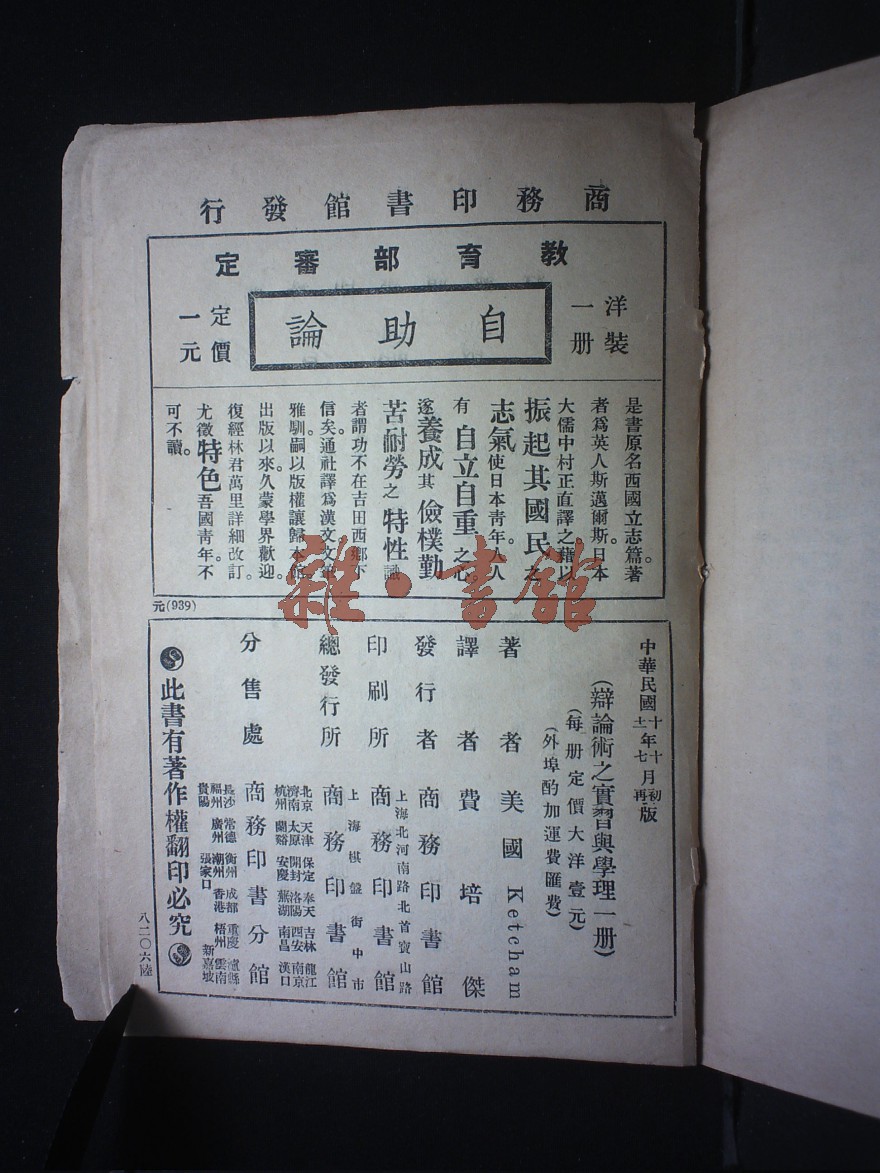 商務印書館發行
教育部審定
洋裝一册
自助論
定價一元
是書原名西國立志篇。著
者爲英人斯邁爾斯。日本
大儒中村正直譯之。藉以
振起其國民之
志氣。使日本青年。人人
有自立自重之心。
遂養成其儉樸勤
苦耐勞之特性。識
者謂功不在吉田西鄉下
信矣。通社譯爲漢文。文筆
雅馴。嗣以版權讓歸本館。
出版以來。久蒙學界歡迎。
復經林君萬里詳細改訂。
尤徵特色。吾國青年。不
可不讀。
元(939)
雜·書館
中華民國十一年十月初版
十二年七月再版
(辯論術之實習與學理一册)
(每册定價大洋壹元)
(外埠酌加運費匯費)
著者 美國 Ketcham
譯者 費培傑
發行者 商務印書館
上海北河南路北首寶山路
印刷所 商務印書館
上海棋盤街中市
總發行所 商務印書館
北京 天津 保定 奉天 吉林 龍江
濟南 太原 開封 洛陽 西安 南京
杭州 蘭谿 安慶 蕪湖 南昌 漢口
分售處 商務印書分館
長沙 常德 衡州 成都 重慶 瀘縣
福州 廣州 潮州 香港 梧州 雲南
貴陽 張家口 新嘉坡
此書有著作權翻印必究
八二〇六陸